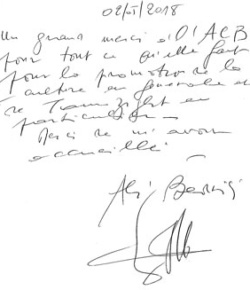 02/05/2018
Un grand merci à l'ACB
pour tout ce qu'elle fait
pour la promotion de la
culture en générale et
de Tamazight en
particulier.
Merci de m'avoir
accueilli.